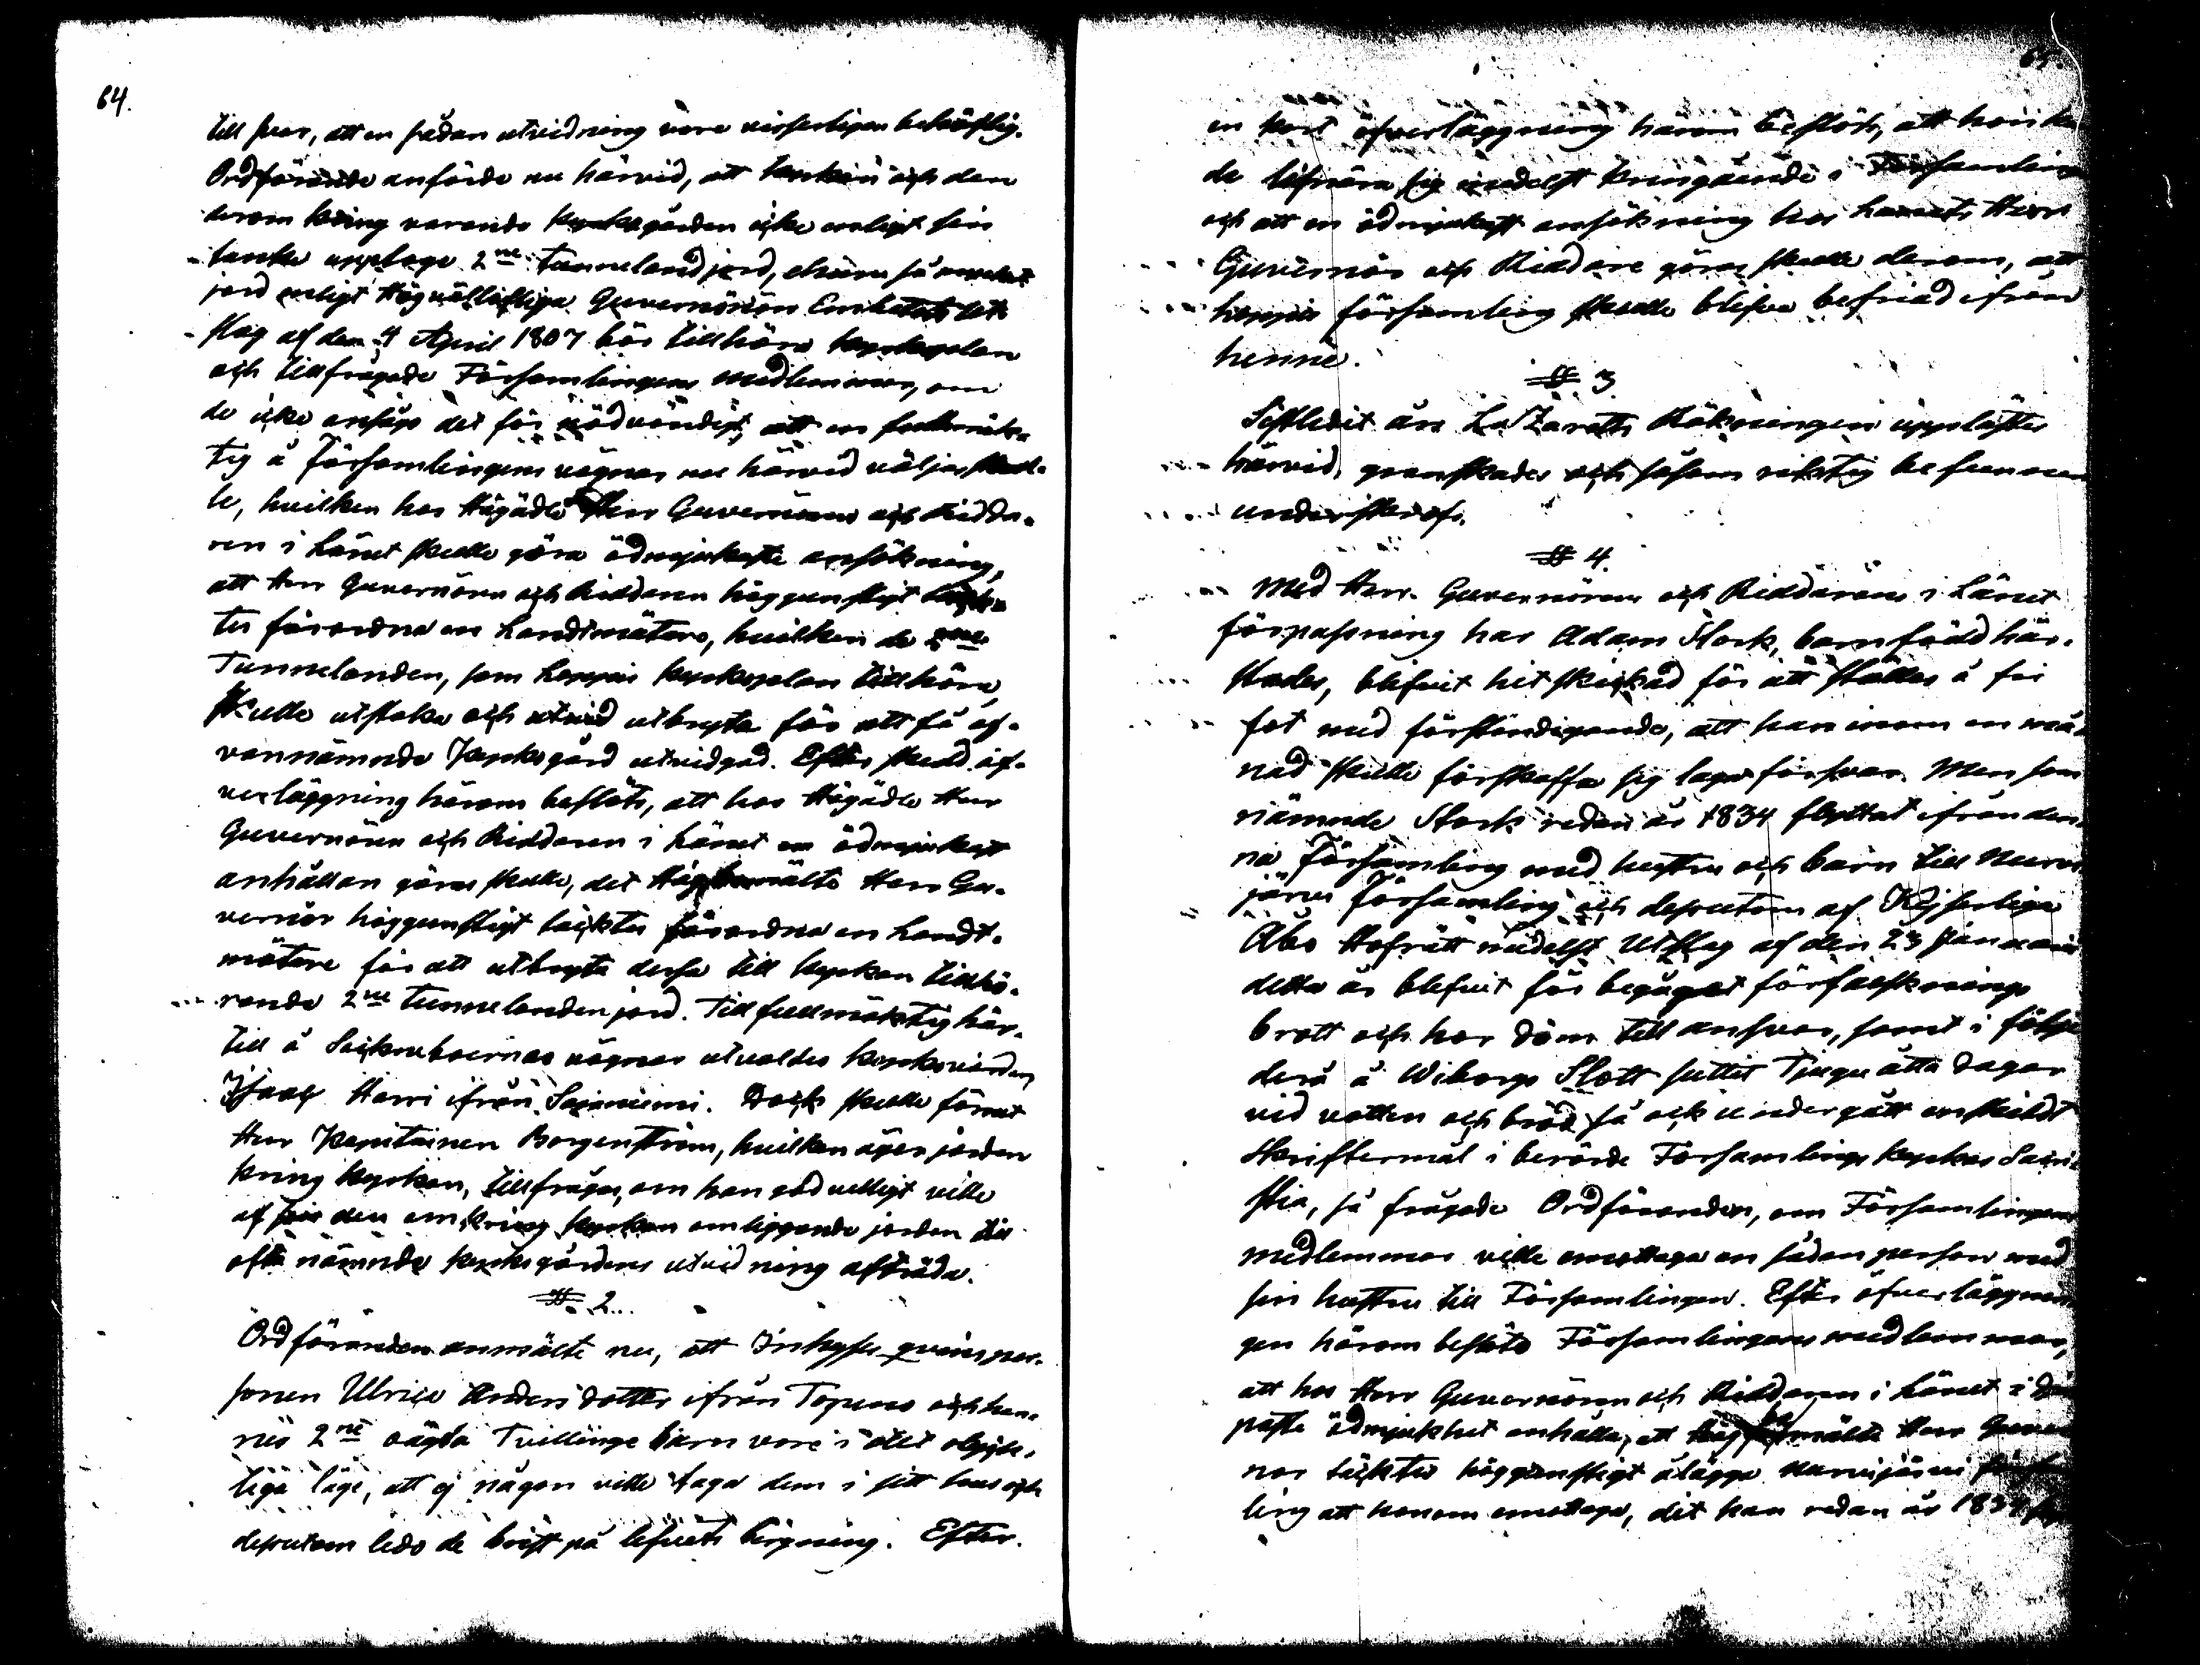 64.
till svar, att en sådan utvidning vore visserligen behöflig.
Ordförande anförde nu härvid, att kyrkan och den
derom kring varande kyrkogården icke enligt sin
tanke upptage 2ne tunneland jord, ehuru så mycket
jord enligt Högvällofliga Guvernörens Embetets Ut-
slag af den 4 April 1807 bör tillhöra kyrkoplan
och tillfrågade Församlingens medlemmar, om
de icke ansågo det för nödvändigt, att en fullmäk-
tig å Församlingens vägnar nu härvid väljas skul-
le, hvilken hos Högädle Herr Guvernören och Ridda-
ren i Länet skulle göra ödmjukaste ansökning,
att Herr Guvernören och Riddaren höggunstigt täck-
tes förordna en Landtmätare, hvilken de 2ne
Tunnelanden, som Loppis kyrkoplan tillhöra,
skulle utstaka och utbryta för att få of-
vannämnde Kyrkogård utvidgad. Efter skedd öf-
verläggning härom beslöts, att hos Högädle Herr
Guvernören och Riddaren i Länet en ödmjukast
anhållan göras skulle, det Högbemälte Herr Gu-
vernör höggunstigt täcktes förordna en Landt-
mätare för att utbryta dessa till kyrkan tillhö-
rande 2ne tunnelanden jord. Till fullmäktig här-
till å Socknuboernas vägnar utvaldes kyrkovärden
Isaac Harri ifrån Sajaniemi. Dock skulle förut
Herr Kapitainen Borgenström, hvilken äger jorden
kring kyrkan, tillfrågas, om han godvilligt ville
af den omkring kyrkan omliggande jorden till
ofta nämnde kyrkogårdens utvidning afträda.
§ 2.
Ordföranden anmälte nu, att Inhyses qvinsper-
sonen Ulrica Anders dotter ifrån Topeno och hen-
nes 2ne oägta Tvillinge barn vore i ett olyck-
liga läge, att ej någon ville taga dem i sitt hus och
dessutom ledo de brist på lifvets bergning. Efter
65.
en kort öfverläggning härom beslöts, att hon
de lifnära sig medelst kringgående i Församlin
och att en ödmjukast ansökning hos Länets Herr
Guvernör och Riddare göras skulle derom, att
Loppis församling skulle blifva befriad ifrån
henne.
§ 3
Sistledit års LaZaretts Räkningen upplästes
härvid, granskades och såsom riktig befunnen
underskrefs.
§ 4.
Med Herr Guvernörens och Riddarens i Länet
förpassning har Adam Stark, barnfödd här-
stades, blifvit hitskickad för att ställas å fri
fot med förständigande, att han inom en må-
nad skulle förskaffa sig laga försvar. Men som
nämnde Stark redan år 1834 flyttat ifrån den-
na Församling med hustru och barn till Nurmi
järvi Församling och dessutom af Kejserliga
Åbo Hofrätt medelst Utslag af den 23 Januari
detta år blifvit för begånget förfalsknings
brott och har dömd till ansvar, samt i följe
deraf å Wiborgs Slott suttit Tjugu åtta dagar
vid vatten och bröd så ock undergått enskildt
Skriftermål i berörde Församlings kyrkas Sacri-
stia, så frågade Ordföranden, om Församlingens
medlemmar ville emottaga en sådan person med
sin hustru till Församlingen. Efter öfverläggnin
gen härom beslöto Församlingens medlemmar,
att hos Herr Guvernören och Riddaren i Länet i dju
paste ödmjukhet anhålla, att Högbemälte Herr Guver
nör täcktes höggunstigt ålägga Nurmijärvi Försam
ling att honom emottaga, dit han redan år 1834